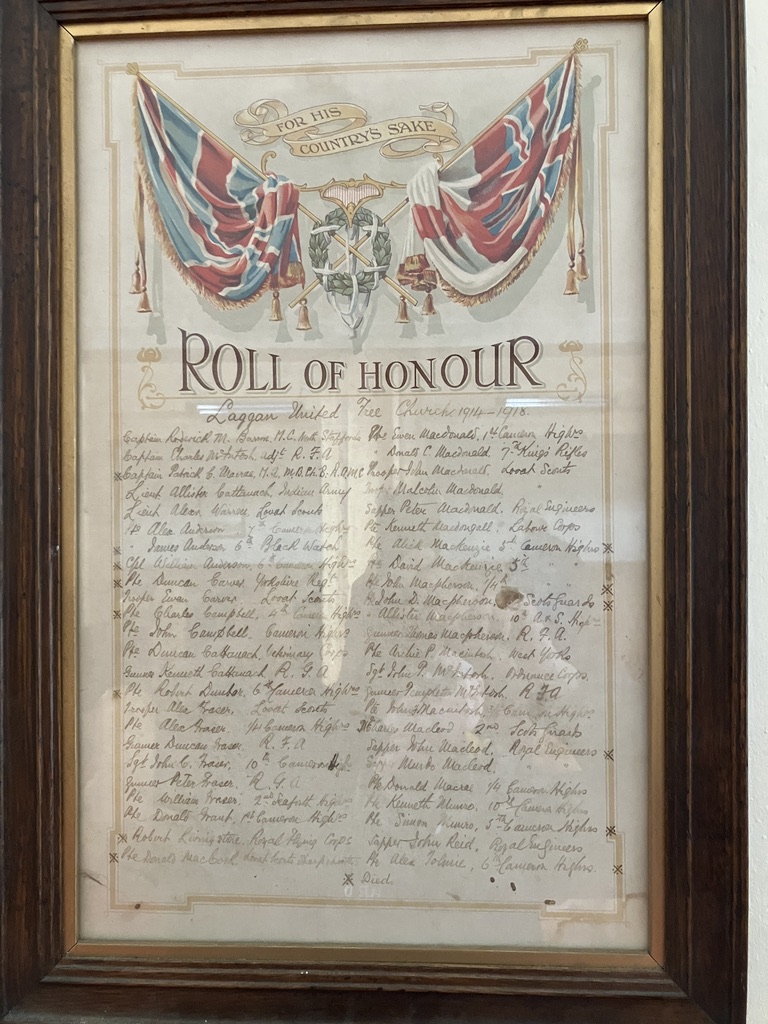 FOR HIS
COUNTRY'S SAKE
ROLL OF HONOUR
Laggan United Free Church 1914-1918.
Captain Roderick M. M.C. North
Captain Charles McIntosh, adjt R. F. A
Captain Patrick C. Warren, M.A. M.B. Ch.B. R.A.M.C
Lieut Allister Cattanach, Indian Army
Lieut Alexr Warren, Lovat Scouts
Alex Anderson 7th Cameron Highrs
" James Anderson 6th Black Watch
Cpl William Anderson, 6th Cameron Highrs
Pte Duncan Yorkshire Regt
Trooper Ewan Lovat Scouts
Pte Charles Campbell, 4th Cameron Highrs
Pte John Campbell, Cameron Highrs
Pte Duncan Cattanach, Veterinary Corps
Gunner Kenneth Cattanach R. G. A
Pte Robert Dunbar, 6th Cameron Highrs
Trooper Alex Fraser, Lovat Scouts
Pte Alex Fraser, 1/4 Cameron Highrs
Gunner Duncan Fraser, R. F. A
Sgt John C. Fraser, 10th Cameron
Gunner Peter Fraser, R. G. A
Pte William Fraser, 2nd Seaforth Highrs
Pte Donald Grant, 1st Cameron Highrs
Robert Livingstone, Royal Flying Corps
Pte Donald Lovat Scouts Sharpshooters
Pte Ewen Macdonald, 1st Cameron Highrs
" Donald C. Macdonald 7th King's Rifles
Trooper Macdonald, Lovat Scouts
Malcolm Macdonald
Sapper Peter Macdonald, Royal Engineers
Pte Kenneth Macdougall, Labour Corps
Pte Alick Mackenzie 5th Cameron Highrs
David Mackenzie 5th " "
Pte John Macpherson, 1/4th " "
Pte John D. Macpherson, Scots Guards
" Allister Macpherson, 10th A & S. Highrs
Gunner Thomas Macpherson, R. F. A.
Pte Archie P. Macintosh, West Yorks
Sgt John McIntosh, Ordnance Corps.
Gunner McIntosh, R F A
Pte John Macintosh, Cameron Highrs
Charles Macleod 2nd Scots Guards
Sapper John Macleod, Royal Engineers
Murdo Macleod, "
Pte Donald Macrae 1/4 Cameron Highrs
Pte Kenneth Munro, 10th Cameron Highrs
Pte Simon Munro, 5th Cameron Highrs
Sapper John Reid, Royal Engineers
Pte Alex Tolmie, 6th Cameron Highrs.
Died.